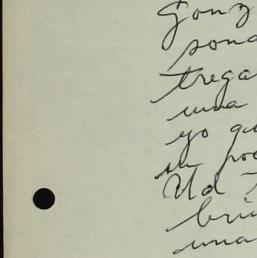 Gonz
sona
trega
una
yo qu
in poc
Ud
brin
una